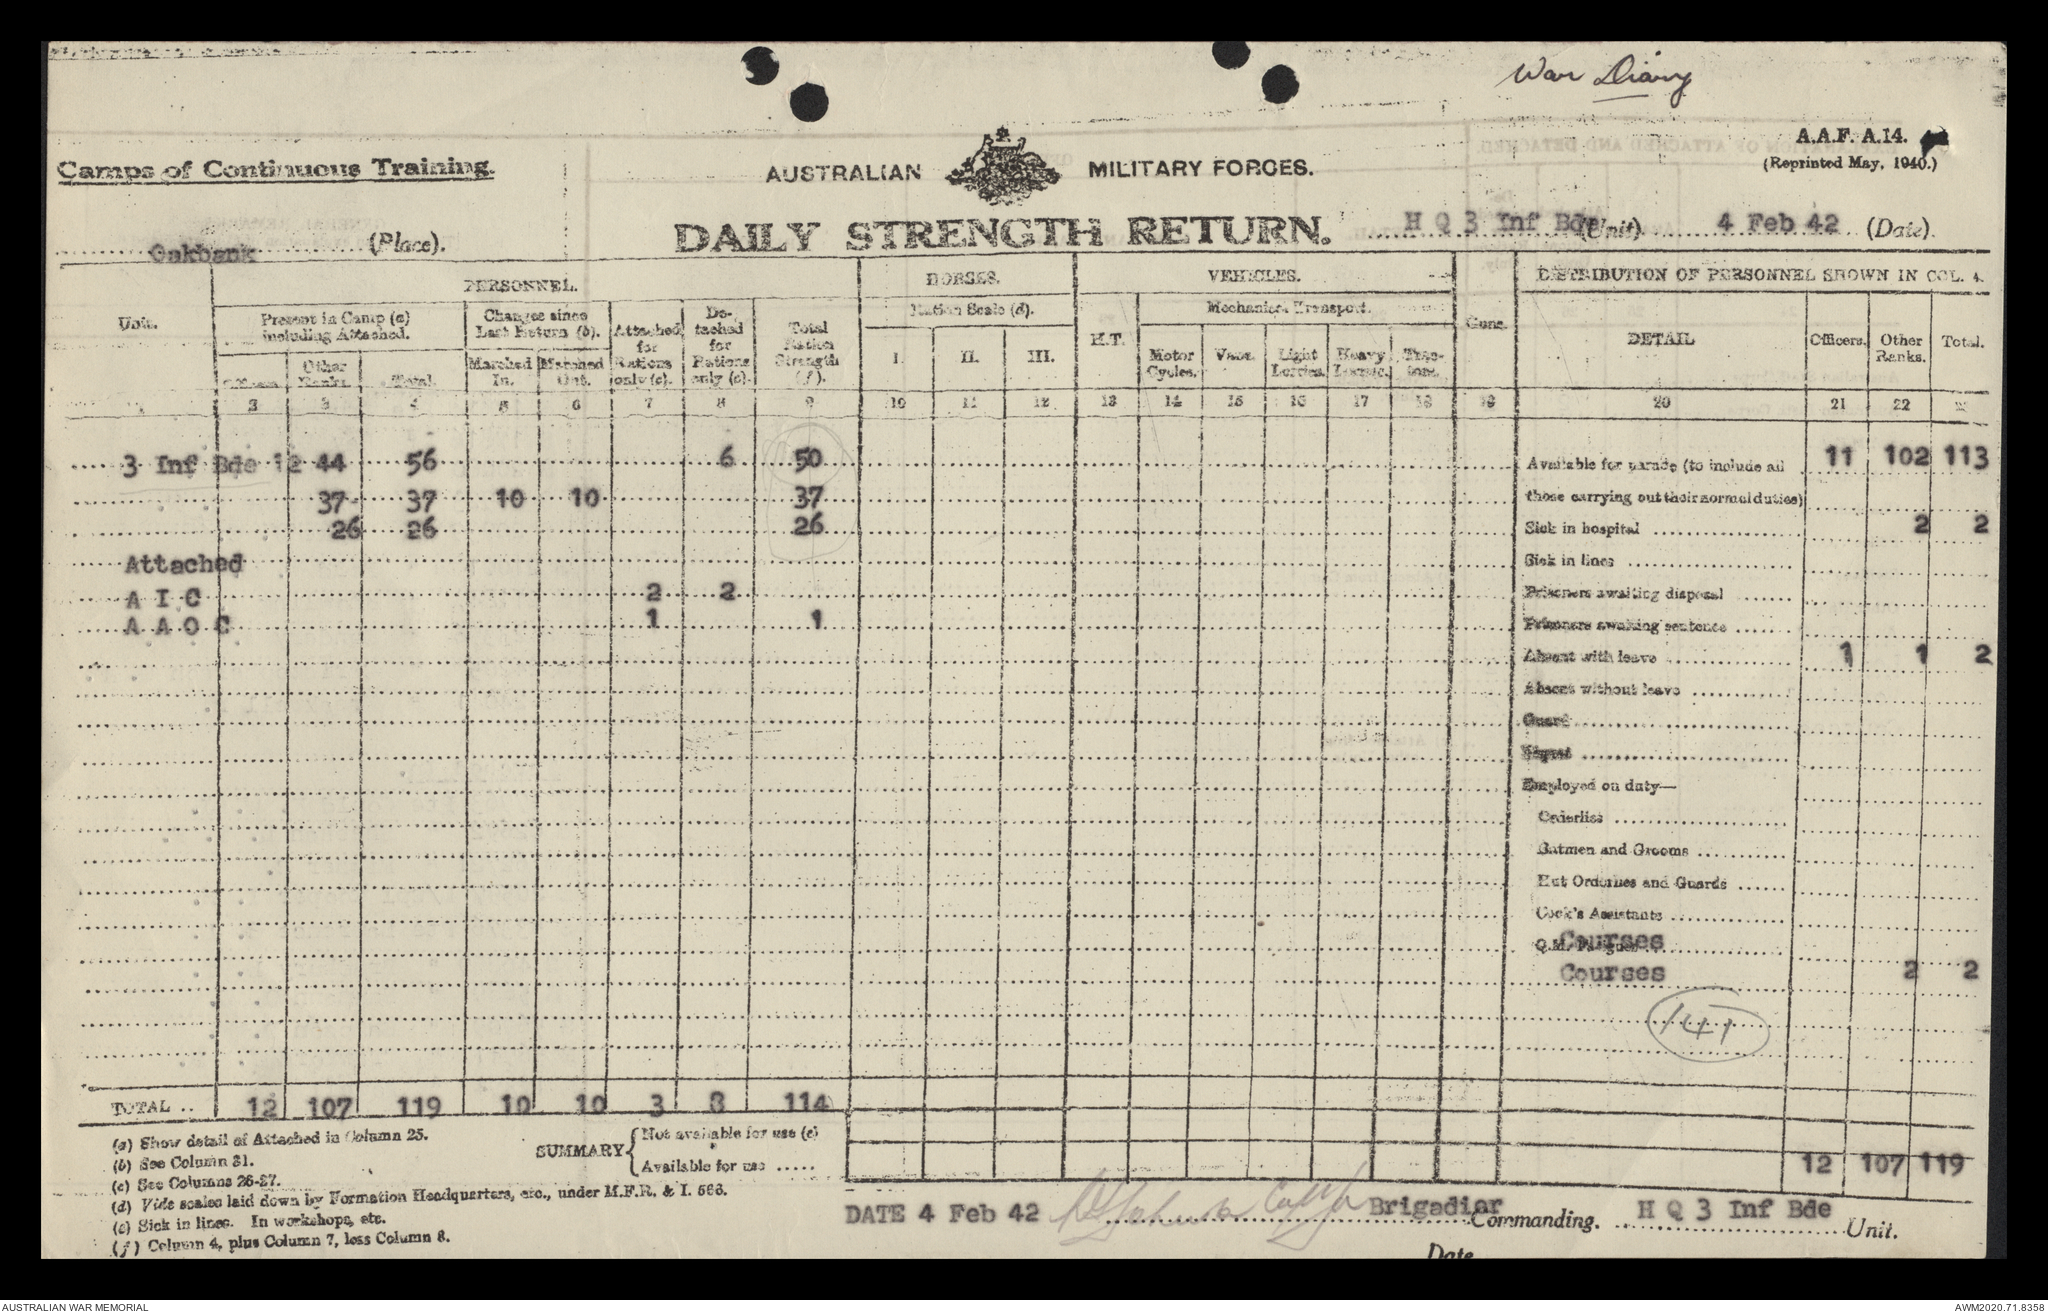 War Diary
A.A.F. A.14.
(Reprinted May, 1940.)
Camps of Continuous Training.
AUSTRALIAN MILITARY FORCES.
Oakbank (Place). DAILY STRENGTH RETURN. H Q 3 Inf Bde (Unit) 4 Feb 42 (Date).
PERSONNEL. HORSES. VEHICLES. DISTRIBUTION OF PERSONNEL SHOWN IN COL. 4.
Unit. Present in Camp (a) including Attached. Changes since Last Return (b). Attached for Rations only (c). Detached for Rations only (c). Total Ration Strength (f). Ration Scale (d). H.T. Mechanical Transport. Guns. DETAIL Officers. Other Ranks. Total.
Officers. Other Ranks. Total. Marched In. Marched Out. I. II. III. Motor Cycles. Vans. Light Lorries. Heavy Lorries. Tractors.
2 3 4 5 6 7 8 9 10 11 12 13 14 15 16 17 18 19 20 21 22
3 Inf Bde 12 44 56 6 50 Available for parade (to include all 11 102 113
37 37 10 10 37 those carrying out their normal duties)
26 26 26 Sick in hospital 2 2
Attached Sick in lines
A I C 2 2 Prisoners awaiting disposal
A A O C 1 1 Prisoners awaiting sentence
Absent with leave 1 1 2
Absent without leave
Guard
Piquet
Employed on duty—
Orderlies
Batmen and Grooms
Hut Orderlies and Guards
Cook's Assistants
Q.M. Fatigues Courses
Courses 2 2
141
TOTAL .. 12 107 119 10 10 3 8 114
(a) Show detail of Attached in Column 25.
(b) See Column 31.
(c) See Columns 26-27.
(d) Vide scales laid down by Formation Headquarters, etc., under M.F.R. & I. 566.
(e) Sick in lines. In workshops, etc.
(f) Column 4, plus Column 7, less Column 8.
SUMMARY { Not available for use (e)
Available for use .....
12 107 119
DATE 4 Feb 42 Brigadiar Commanding. H Q 3 Inf Bde Unit.
Date
AUSTRALIAN WAR MEMORIAL
AWM2020.71.8358